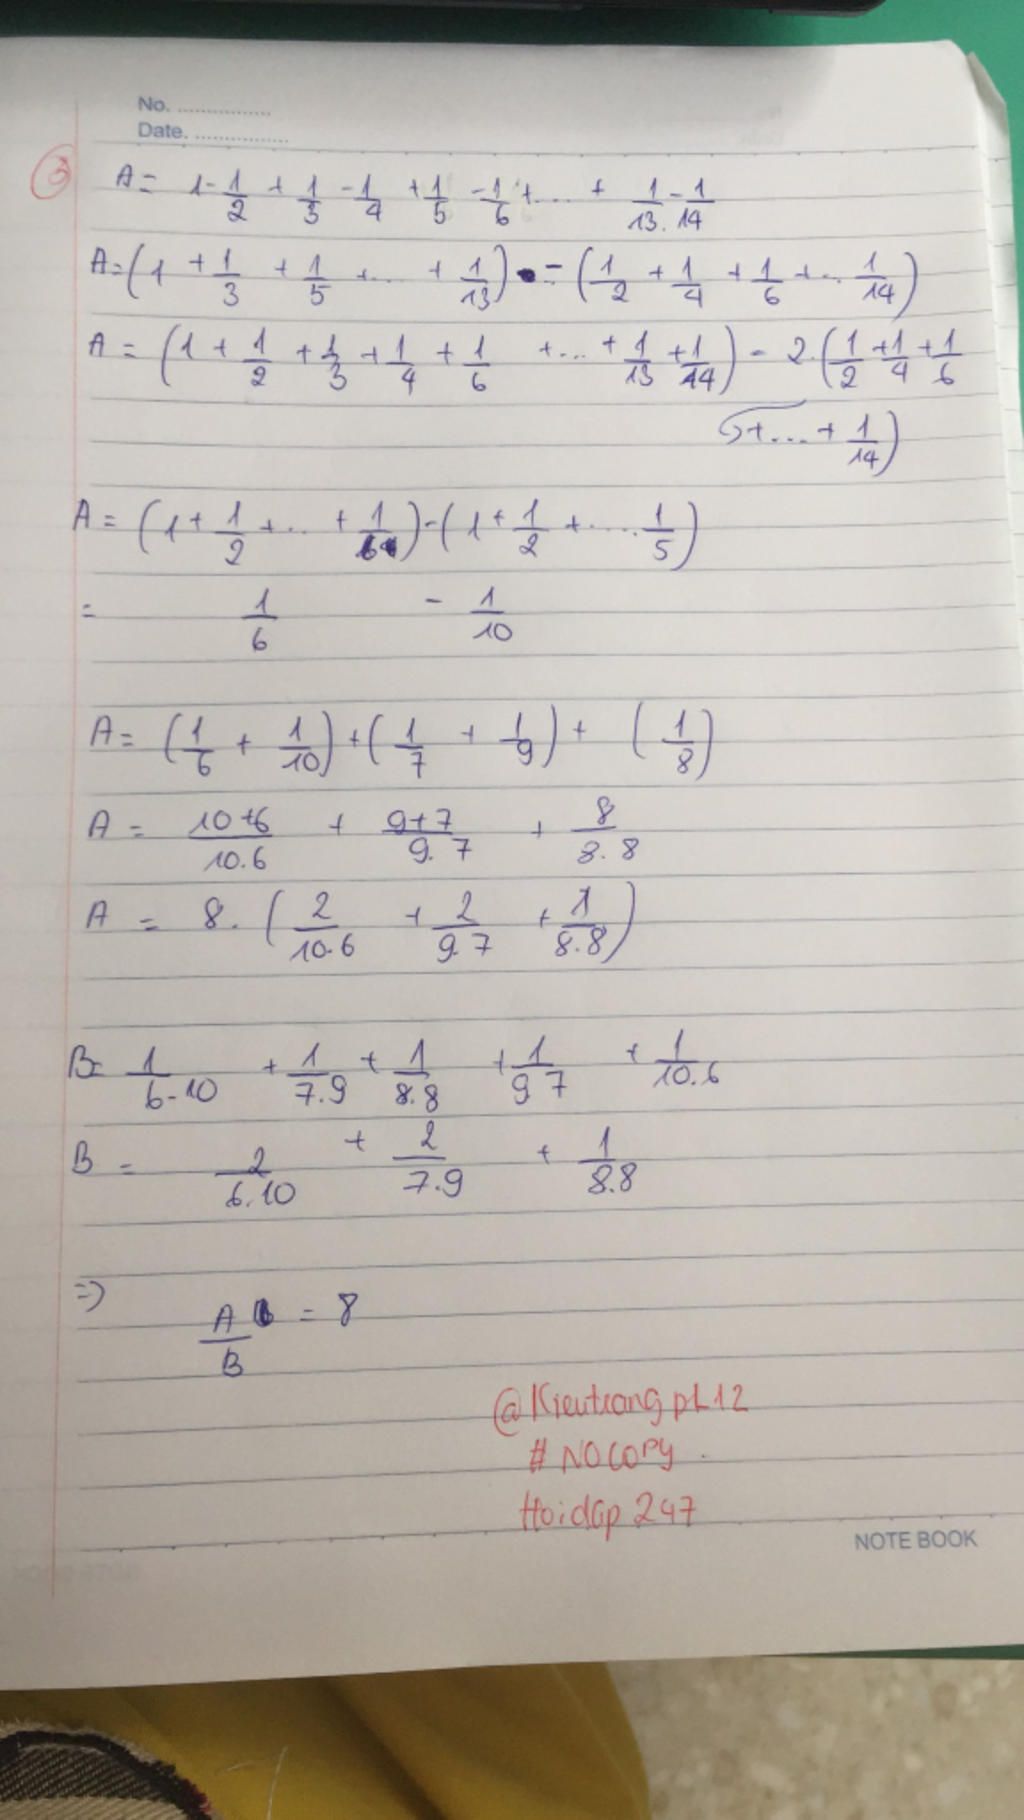 No. ................
Date. ................
③
A = 1 - 1/2 + 1/3 - 1/4 + 1/5 - 1/6 + ... + 1/13 - 1/14
A = (1 + 1/3 + 1/5 + ... + 1/13) - (1/2 + 1/4 + 1/6 + .. 1/14)
A = (1 + 1/2 + 1/3 + 1/4 + 1/6 + ... + 1/13 + 1/14) - 2.(1/2 + 1/4 + 1/6
+ ... + 1/14)
A = (1 + 1/2 + ... + 1/) - (1 + 1/2 + .... 1/5)
= 1/6 - 1/10
A = (1/6 + 1/10) + (1/7 + 1/9) + (1/8)
A = 10+6/10.6 + 9+7/9.7 + 8/8.8
A = 8. (2/10.6 + 2/9.7 + 1/8.8)
B = 1/6.10 + 1/7.9 + 1/8.8 + 1/9.7 + 1/10.6
B = 2/6.10 + 2/7.9 + 1/8.8
=> A/B = 8
@Kieutrangpl12
#NOCOPY
Hoidap 247
NOTE BOOK